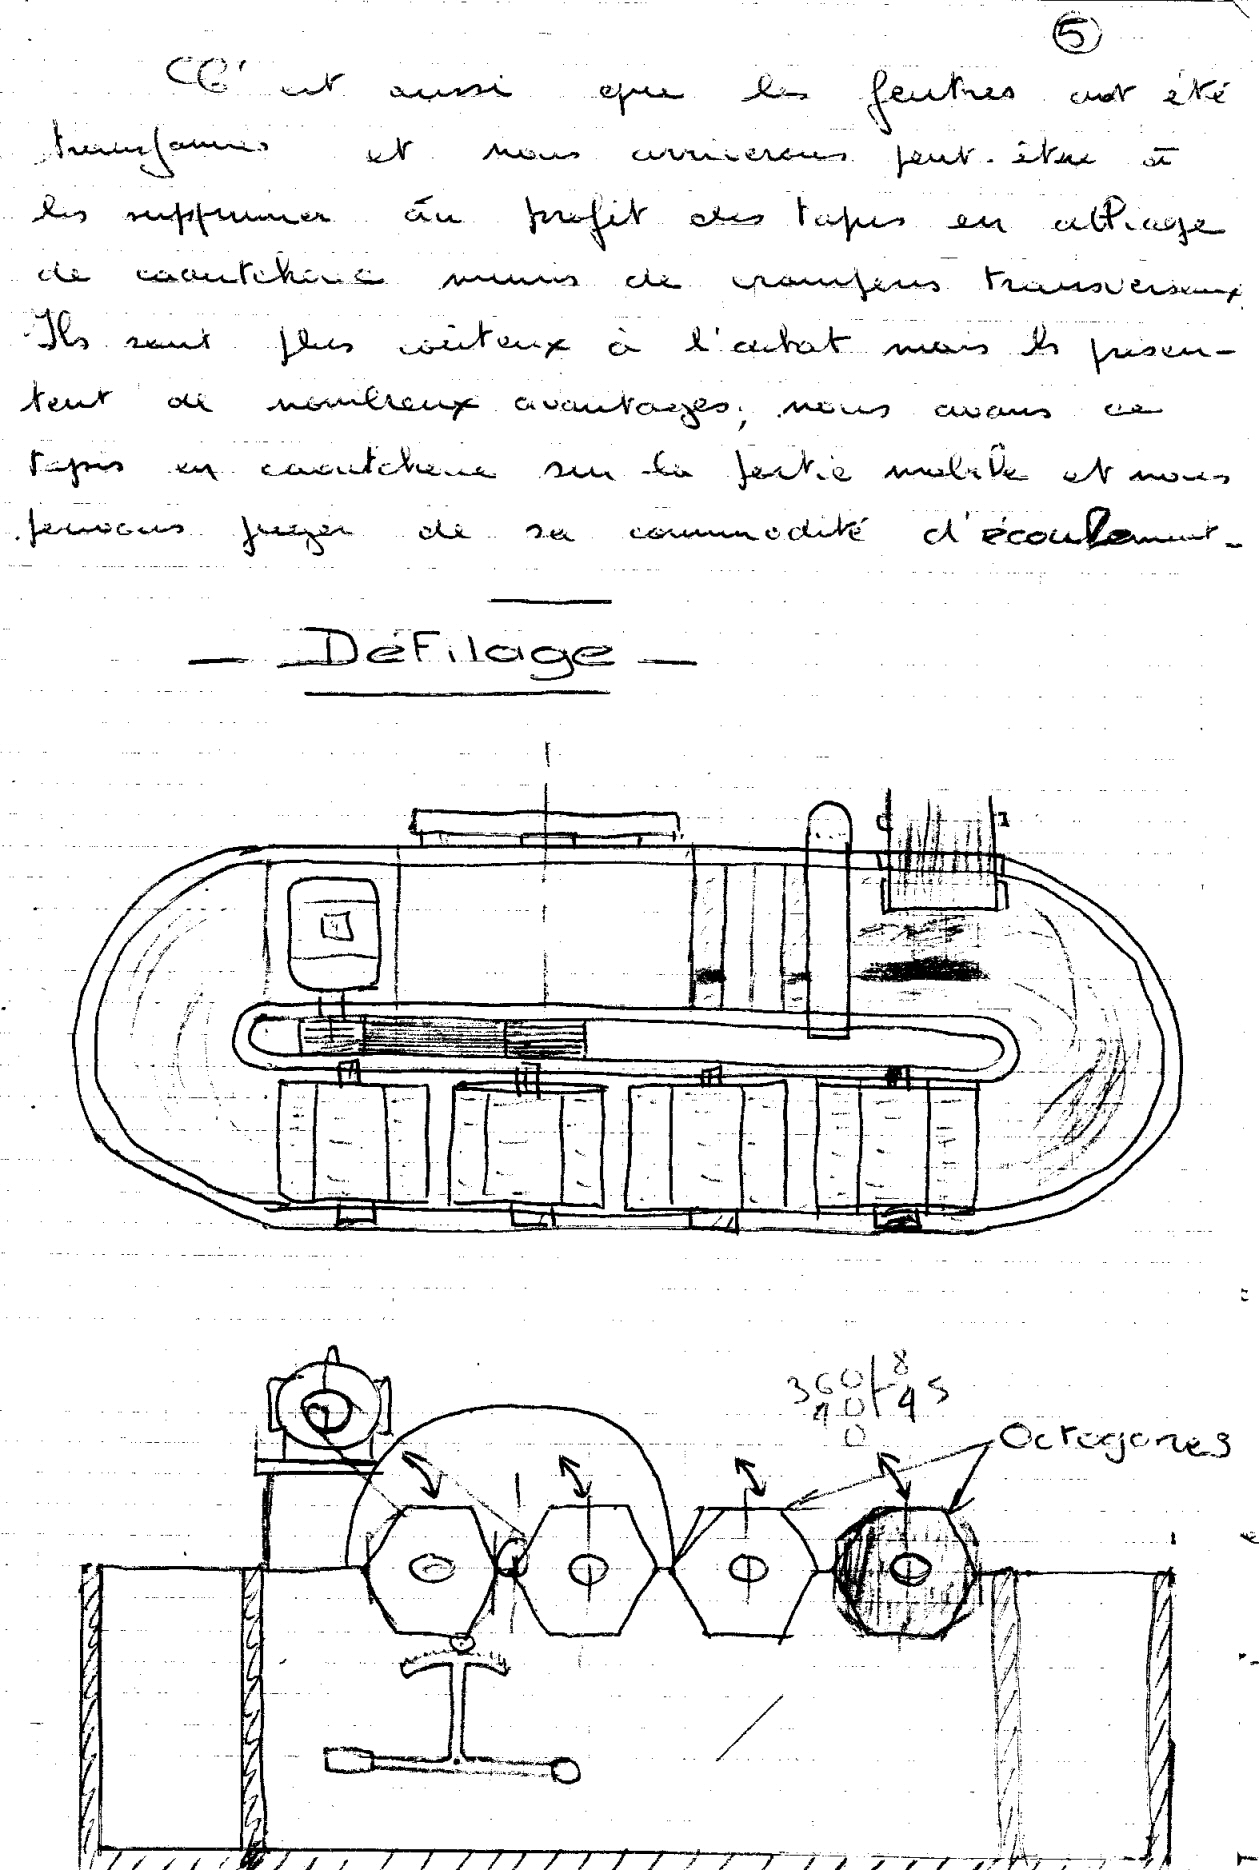 5
C'est aussi que les feutres ont été
transformés et nous arriverons peut-être à
les supprimer au profit des tapis en alliage
de caoutchouc munis de crampons transversaux
Ils sont plus coûteux à l'achat mais ils présen-
tent de nombreux avantages, nous avons ce
tapis en caoutchouc sur la partie mobile et nous
pouvons juger de sa commodité d'écoulement-
— DéFilage —
360 8
40 45
0
Octogones